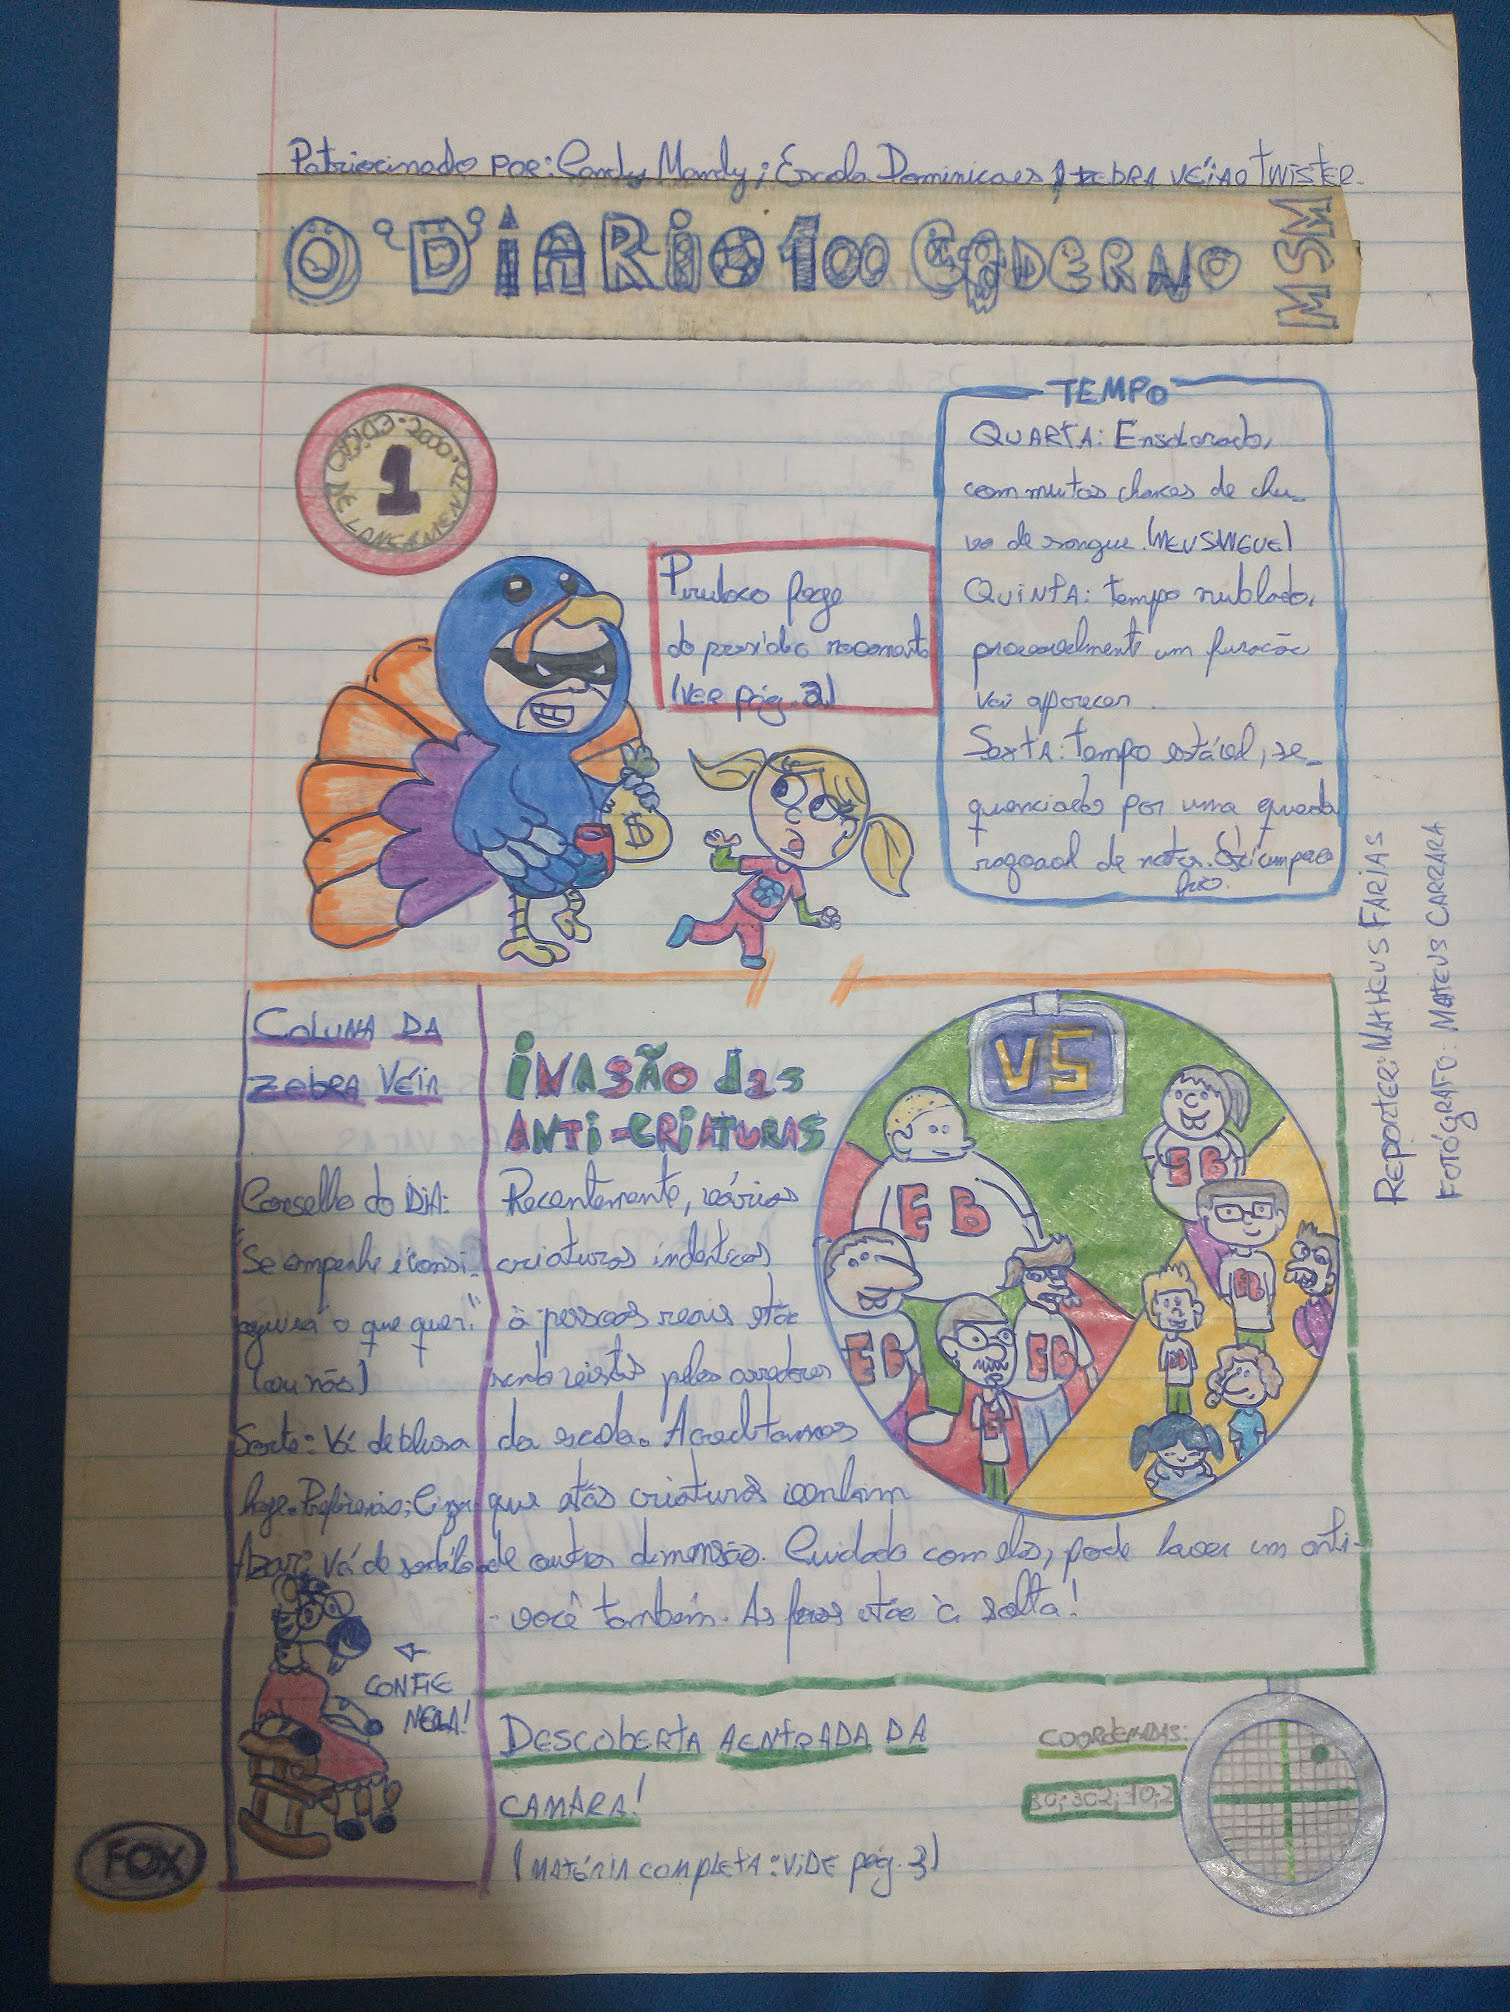 Patriocinado POR: Sandy Mandy; Escola Dominicaes, ZEBRA VÉIA O TWISTER.
O DIARIO 100 CADERNO
MSM
EDIÇÃO DE LANÇAMENTO 2000
1
Piruloco foge
do presídio novamente
(VER pág. 2)
TEMPO
QUARTA: Ensolarado,
com muitas chances de chu-
va de sangue. (MEUSANGUE)
QUINTA: tempo nublado,
provavelmente um furacão
vai aparecer.
SextA: tempo estável, se-
quenciado por uma queda
de notas.
REPORTER: MATHEUS FARIAS
FOTÓGRAFO: MATEUS CARRARA
COLUNA DA
ZEBRA VÉIA
Conselho do DIA:
Se empenhe e consi-
guirá o que quer!"
(ou não)
Sorte: Vá de blusa
hoje. Preferência: Cinza
Azar: Vá de sandália
CONFIE
NELA!
FOX
INVASÃO das
ANTI-CRIATURAS
Recentemente, vários
criaturas indenticas
à pessoas reais estão
sendo vistas pelos arredores
da escola. Acreditamos
que estás criaturas venham
de outra dimensão. Cuidado com elas, pode haver um anti-
-você também. As feras estão à solta!
VS
EB
EB
EB
EB
EB
EB
E
DESCOBERTA A ENTRADA DA
CAMARA!
(MATÉRIA COMPLETA: VIDE pág. 3)
COORDENADAS:
30;302;10;2